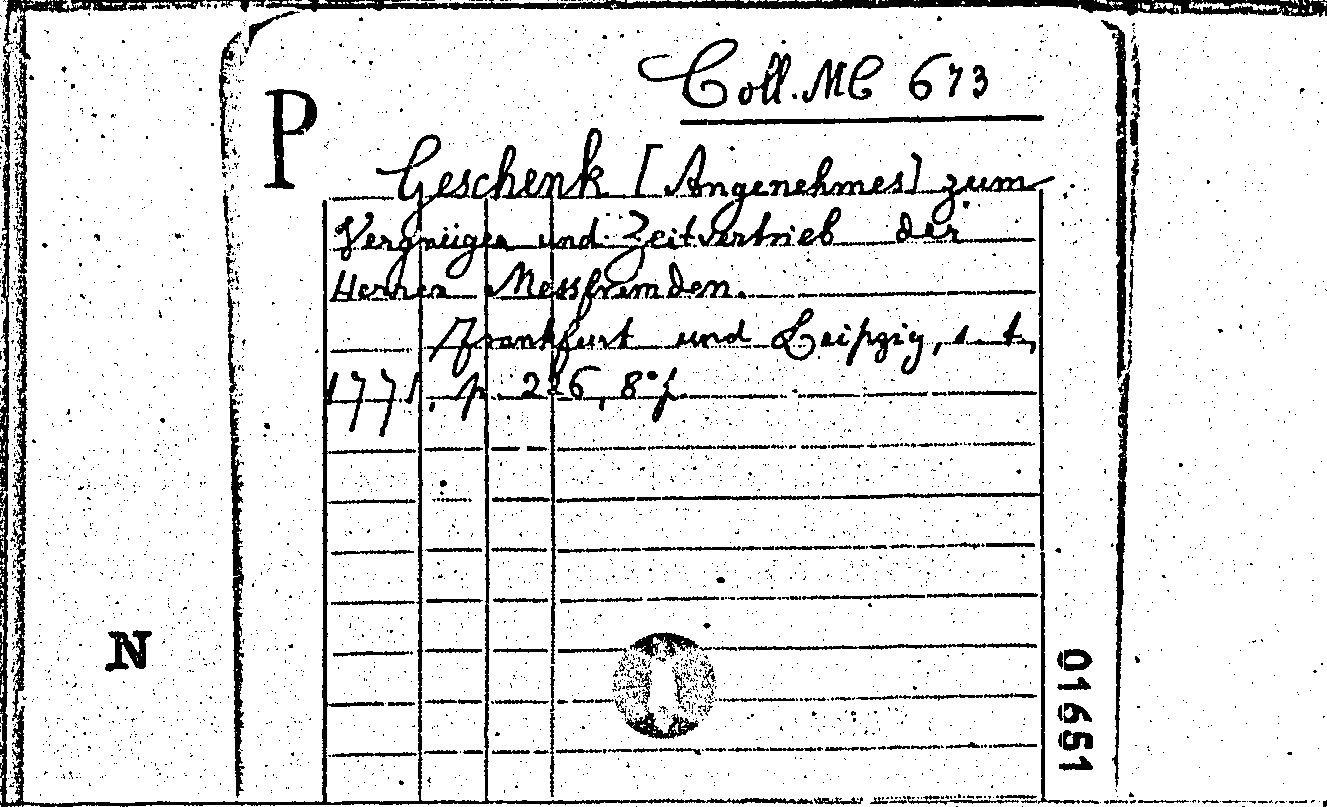 Coll. MC 673
P
Geschenk [Angenehmes] zum
Vergnügen und Zeitvertrieb der
Herren Messfremden.
Frankfurt und Leipzig, s. t,
1771, p. 226, 8°
N
01651